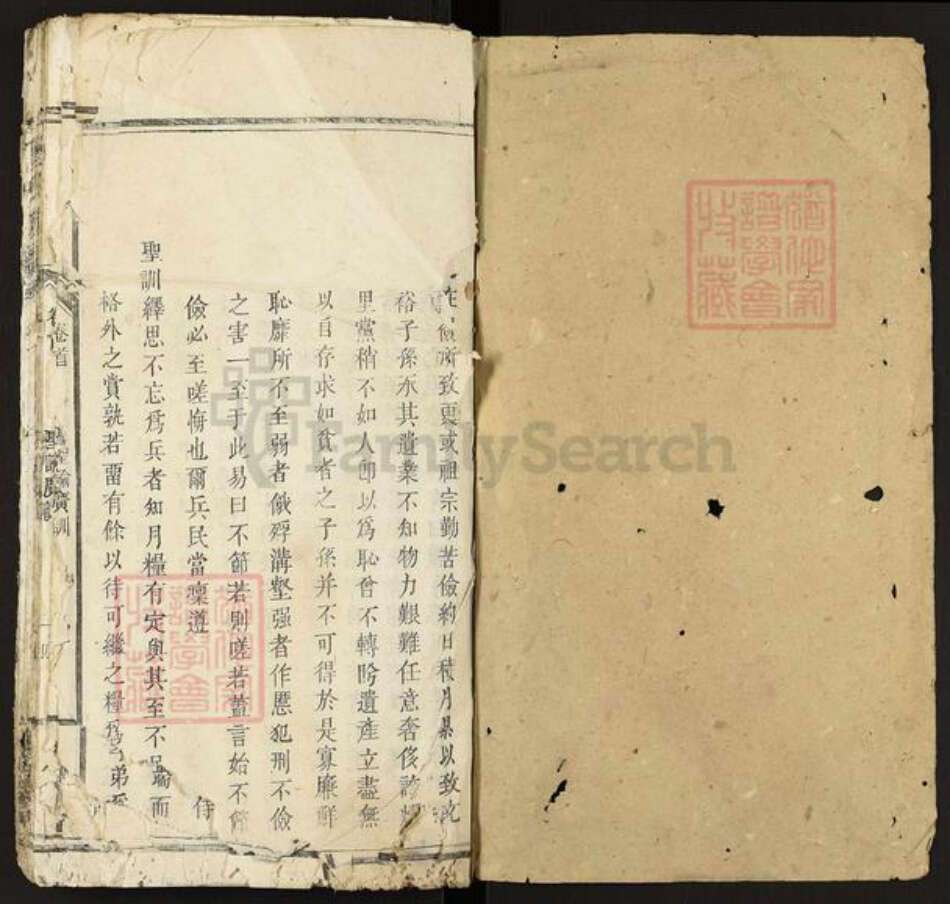 儉所致更或祖宗勤苦儉約日積月累以致
裕子孫承其遺業不知物力艱難任意奢侈誇
里黨稍不如人卽以爲恥曾不轉盻遺產立盡無
以自存求如貧者之子孫并不可得於是寡廉鮮
恥靡所不至弱者餓殍溝壑强者作慝犯刑不儉
之害一至于此易曰不節若則嗟若蓋言始不節
儉必至嗟悔也爾兵民當凜遵
聖訓繹思不忘爲兵者知月糧有定與其至不足而
格外之賞孰若畱有餘以待可繼之糧
卷首
廣訓
猶他家
譜學會
特藏
FamilySearch